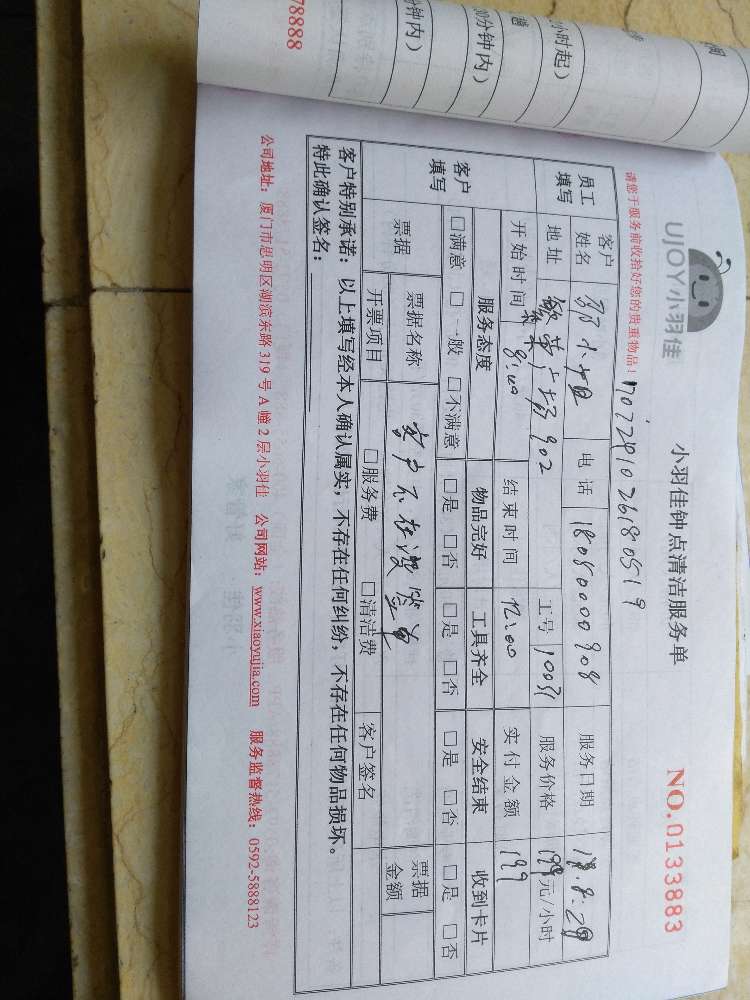 UJOY小羽佳
小羽佳钟点清洁服务单
NO.0133883
请您于服务前收拾好您的贵重物品！
员工填写 客户姓名 小姐 电话 18050000908 服务日期 18.8.29
地址 902 工号 10031 服务价格 199元/小时
开始时间 8:00 结束时间 12:00 实付金额 199
客户填写 服务态度 物品完好 工具齐全 安全结束 收到卡片
□满意 □一般 □不满意 □是 □否 □是 □否 □是 □否 □是 □否
票据 票据名称 客户不在没签单 票据金额
开票项目 □服务费 □清洁费 客户签名
客户特别承诺：以上填写经本人确认属实，不存在任何纠纷，不存在任何物品损坏。
特此确认签名：
公司地址：厦门市思明区湖滨东路319号A幢2层小羽佳 公司网站：www.xiaoyujia.com 服务监督热线：0592-5888123
小时起）
分钟内）
钟内）
78888